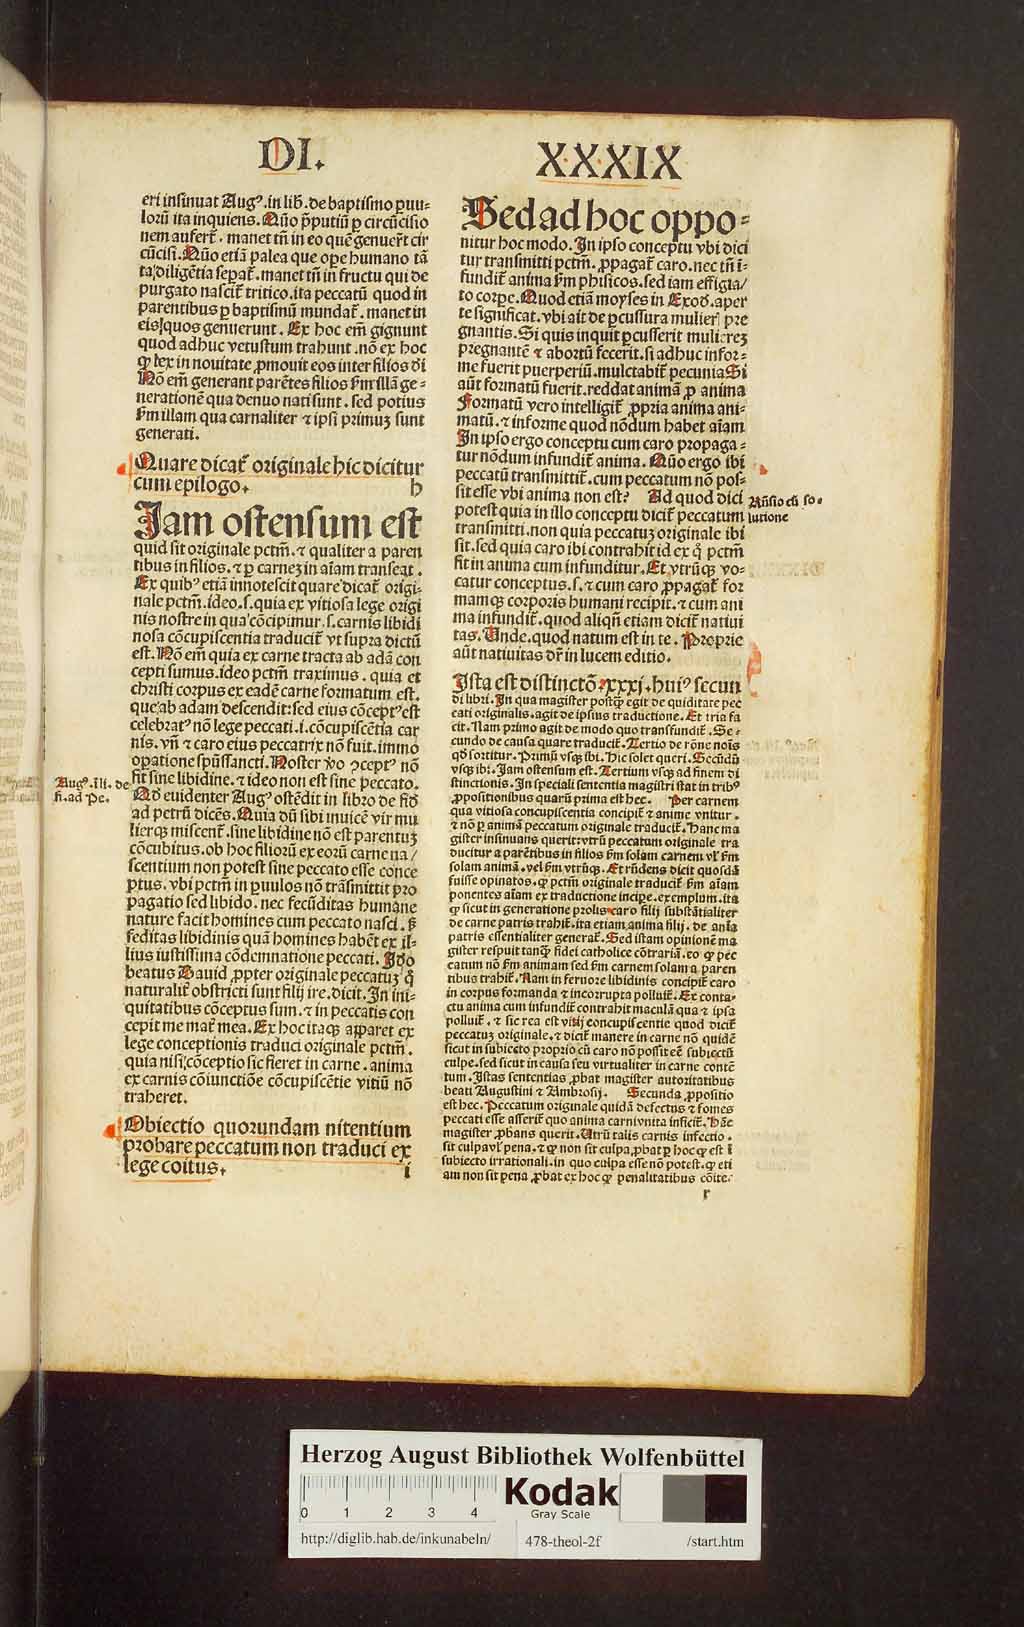 DI.
XXXIX
eri insinuat Augꝰ. in lib̃. de baptismo ꝑuu-
lorũ ita inquiens. Quõ p̃putiũ ꝑ circũcisio
nem aufert̃. manet tñ in eo quẽ genuer̃t cir
cũcisi. Quõ etiã palea que ope humano tã
ta diligẽtia seꝑat̃. manet tñ in fructu qui de
purgato nascit̃ tritico. ita peccatũ quod in
parentibus ꝑ baptismũ mundat̃. manet in
eis quos genuerunt. Ex hoc em̃ gignunt
quod adhuc vetustum trahunt. nõ ex hoc
qꝫ lex in nouitate ꝓmouit eos inter filios di
Nõ em̃ generant parẽtes filios ẜm illã ge-
nerationẽ qua denuo nati sunt. sed potius
ẜm illam qua carnaliter ⁊ ipsi primuꝫ sunt
generati.
Quare dicat̃ originale hic dicitur
cum epilogo. h
Jam ostensum est
quid sit originale pctm̃. ⁊ qualiter a paren
tibus in filios. ⁊ ꝑ carneꝫ in aĩam transeat.
Ex quibꝰ etiã innotescit quare dicat̃ origi-
nale pctm̃. ideo. s. quia ex vitiosa lege origi
nis nostre in qua cõcipimur. s. carnis libidi
nosa cõcupiscentia traducit̃ vt supra dictũ
est. Nõ em̃ quia ex carne tracta ab adã con
cepti sumus. ideo pctm̃ traximus. quia et
christi corpus ex eadẽ carne formatum est.
que ab adam descendit: sed eius cõceptꝰ est
celebratꝰ nõ lege peccati. i. cõcupiscẽtia car
nis. vñ ⁊ caro eius peccatrix nõ fuit. immo
oꝑatione spũssancti. Noster ꝟo ꝯceptꝰ nõ
fit sine libidine. ⁊ ideo non est sine peccato.
Augꝰ. i li. de
fi. ad Pe.
Qd̃ euidenter Augꝰ ostẽdit in libro de fid̃
ad petrũ dicẽs. Quia dũ sibi inuicẽ vir mu
lierqꝫ miscent̃. sine libidine nõ est parentuꝫ
cõcubitus. ob hoc filiorũ ex eorũ carne na/
scentium non potest sine peccato esse conce
ptus. vbi pctm̃ in ꝑuulos nõ trãsmittit pro
pagatio sed libido. nec fecũditas humane
nature facit homines cum peccato nasci. ẜ
feditas libidinis quã homines habẽt ex il-
lius iustissima cõdemnatione peccati. Jd̃o
beatus Dauid ꝓpter originale peccatuꝫ q̃
naturalit̃ obstricti sunt filij ire. dicit. In ini-
quitatibus cõceptus sum. ⁊ in peccatis con
cepit me mat̃ mea. Ex hoc itaqꝫ apparet ex
lege conceptionis traduci originale pctm̃.
quia nisi cõceptio sic fieret in carne. anima
ex carnis cõiunctiõe cõcupiscẽtie vitiũ nõ
traheret.
Obiectio quorundam nitentium
probare peccatum non traduci ex
lege coitus. i
Sed ad hoc oppo-
nitur hoc modo. In ipso conceptu vbi dici
tur transmitti pctm̃. ꝓpagat̃ caro. nec tñ ĩ-
fundit̃ anima ẜm phisicos. sed iam effigia/
to corpe. Quod etiã moyses in Exod̃. aper
te significat. vbi ait de ꝑcussura mulier̃ pre
gnantis. Si quis inquit ꝑcusserit mulierez
pregnantẽ ⁊ abortũ fecerit. si adhuc infor-
me fuerit puerperiũ. mulctabit̃ pecunia Si
aũt formatũ fuerit. reddat animã ꝓ anima
Formatũ vero intelligit̃ ꝓpria anima ani-
matũ. ⁊ informe quod nõdum habet aĩam
In ipso ergo conceptu cum caro propaga-
tur nõdum infundit̃ anima. Quõ ergo ibi
peccatũ transmittit̃. cum peccatum nõ pos-
sit esse vbi anima non est? Ad quod dici
Rñsio cũ so-
lutione
potest quia in illo conceptu dicit̃ peccatum
transmitti. non quia peccatuꝫ originale ibi
sit. sed quia caro ibi contrahit id ex q̃ pctm̃
fit in anima cum infunditur. Et vtrũqꝫ vo-
catur conceptus. s. ⁊ cum caro ꝓpagat̃ for
mamqꝫ corporis humani recipit. ⁊ cum ani
ma infundit̃. quod aliqñ etiam dicit̃ natiui
tas. Unde. quod natum est in te. Proprie
aũt natiuitas dr̃ in lucem editio.
Ista est distinctõ. xxxj. huiꝰ secun
di libri. In qua magister postqꝫ egit de quiditate pec
cati originalis. agit de ipsius traductione. Et tria fa
cit. Nam primo agit de modo quo transfundit̃. Se-
cundo de causa quare traducit̃. Tertio de rõne nois
qd̃ sortitur. Primũ vsqꝫ ibi. Hic solet queri. Secũdũ
vsqꝫ ibi. Jam ostensum est. Tertium vsqꝫ ad finem di
stinctionis. In speciali sententia magistri stat in tribꝰ
ꝓpositionibus quarũ prima est hec. Per carnem
qua vitiosa concupiscentia concipit̃ ⁊ anime vnitur.
⁊ nõ ꝑ animã peccatum originale traducit̃. Hanc ma
gister insinuans querit: vtrũ peccatum originale tra
ducitur a parẽtibus in filios ẜm solam carnem vl̃ ẜm
solam animã. vel ẜm vtrũqꝫ. Et rñdens dicit quosdã
fuisse opinatos. qꝫ pctm̃ originale traducit̃ ẜm aĩam
ponentes aĩam ex traductione incipe. exemplum. ita
qꝫ sicut in generatione prolis caro filij substãtialiter
de carne patris trahit̃. ita etiam anima filij. de aĩa
patris essentialiter generat̃. Sed istam opinionẽ ma
gister respuit tanqꝫ fidei catholice cõtrariã. eo qꝫ pec
catum nõ ẜm animam sed ẜm carnem solam a paren
tibus trahit̃. Nam in feruore libidinis concipit̃ caro
in corpus formanda ⁊ incorrupta polluit̃. Ex conta-
ctu anima cum infundit̃ contrahit maculã qua ⁊ ipsa
polluit̃. ⁊ sic rea est vitij concupiscentie quod dicit̃
peccatuꝫ originale. ⁊ dicit̃ manere in carne nõ quidẽ
sicut in subiecto proprio cũ caro nõ possit eẽ subiectũ
culpe. sed sicut in causa seu virtualiter in carne contẽ
tum. Istas sententias ꝓbat magister autoritatibus
beati Augustini ⁊ Ambrosij. Secunda ꝓpositio
est hec. Peccatum originale quidã defectus ⁊ fomes
peccati esse asserit̃ quo anima carni vnita inficit̃. Hãc
magister ꝓbans querit. Utrũ talis carnis infectio.
sit culpa vl̃ pena. ⁊ qꝫ non sit culpa. ꝓbat ꝑ hoc qꝫ est ĩ
subiecto irrationali. in quo culpa esse nõ potest. qꝫ eti
am non sit pena ꝓbat ex hoc qꝫ penalitatibus cõite.
r
Herzog August Bibliothek Wolfenbüttel
0 1 2 3 4
Kodak
Gray Scale
http://diglib.hab.de/inkunabeln/ 478-theol-2f /start.htm